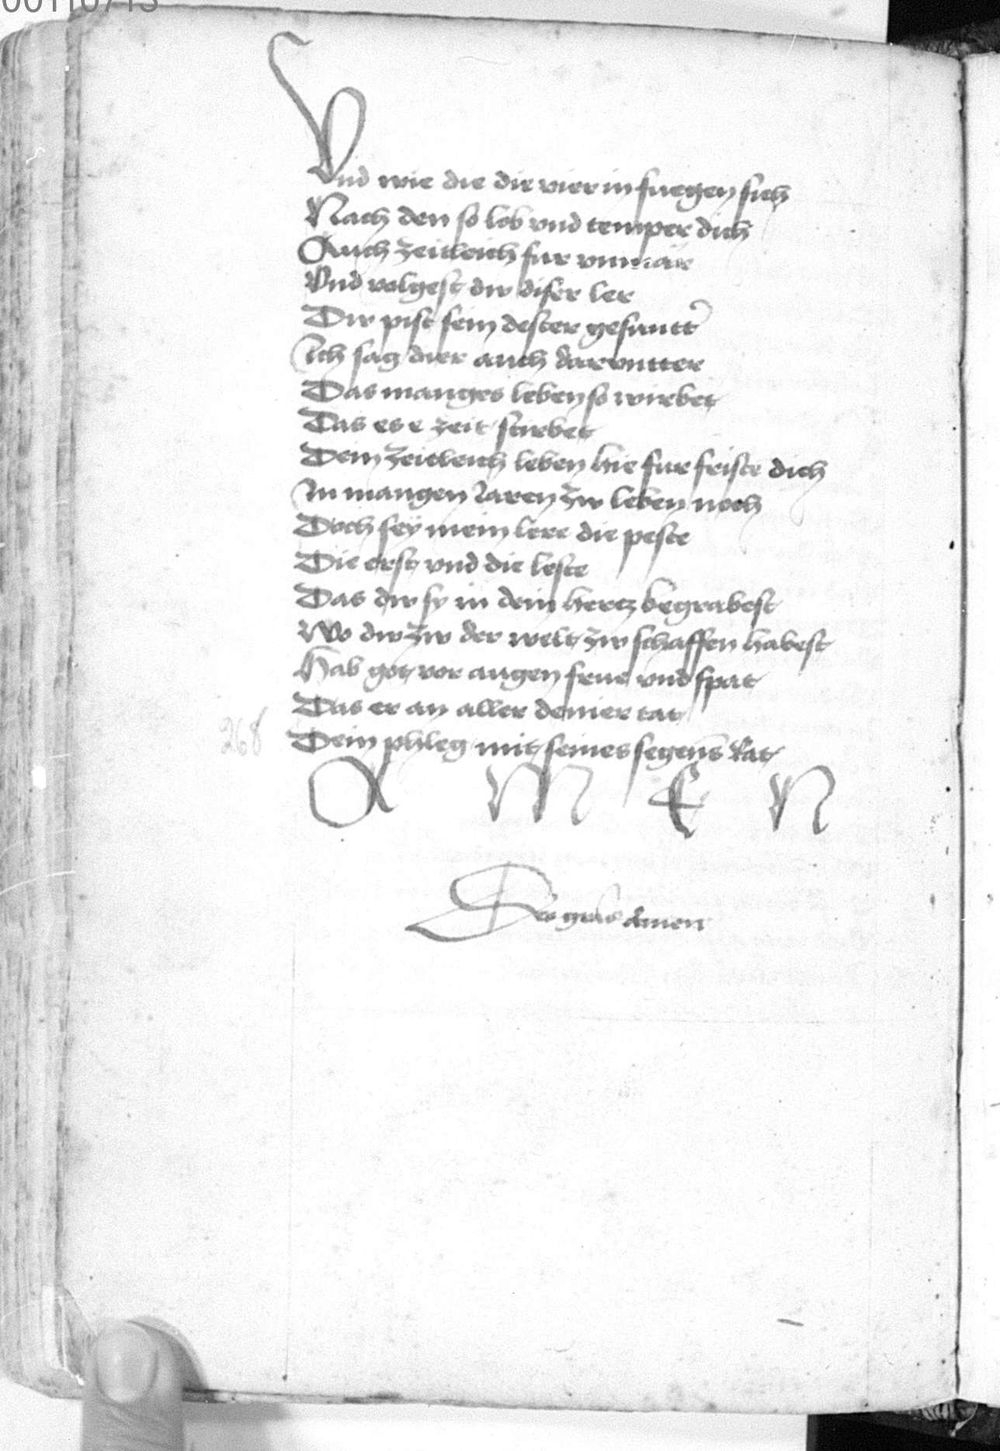 00110713
Vnd wie die dir vier in fuegen sich
Nach den so leb vnd temper dich
Auch zeitleich fur vnmär
Vnd volgest dw diser ler
Dw pist sein dester gesuntt
Ich sag dier auch darvntter
Das manges leben so wirbet
Das es e zeit stirbet
Dem zeitleich leben hie fur friste dich
In mangen Jaren zw leben noch
Doch seÿ mein lere die peste
Die erst vnd die leste
Das dw sy in dein hertz begrabest
Wo dw zw der welt zw schaffen habest
Hab got vor augen frue vnd spat
Das er an aller deiner tat
268
Dein phleg mit seines segens Rat
A M E N
Deo gratias Amen